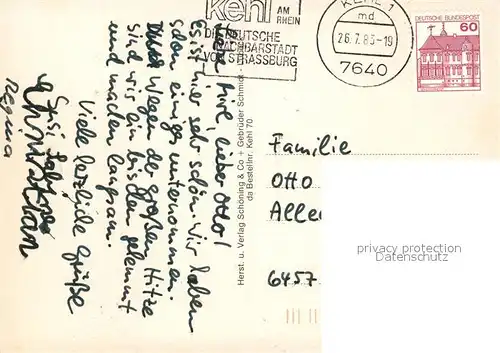 kehl AM RHEIN
DIE DEUTSCHE
NACHBARSTADT
VON STRASSBURG
KEHL 1
md
26.7.83-19
7640
DEUTSCHE BUNDESPOST
60
Liebe lieber Otto!
Es ist hier sehr schön. Wir haben
schon einiges unternommen.
Durch wegen der großen Hitze
sind wir ein bischen gelähmt
und machen langsam.
Viele herzliche Grüße
Susi
Christian
Regina
Herst. u. Verlag Schöning & Co + Gebrüder Schmidt
da Bestellnr. Kehl 70
Familie
Otto
Alle
6457
privacy protection
Datenschutz